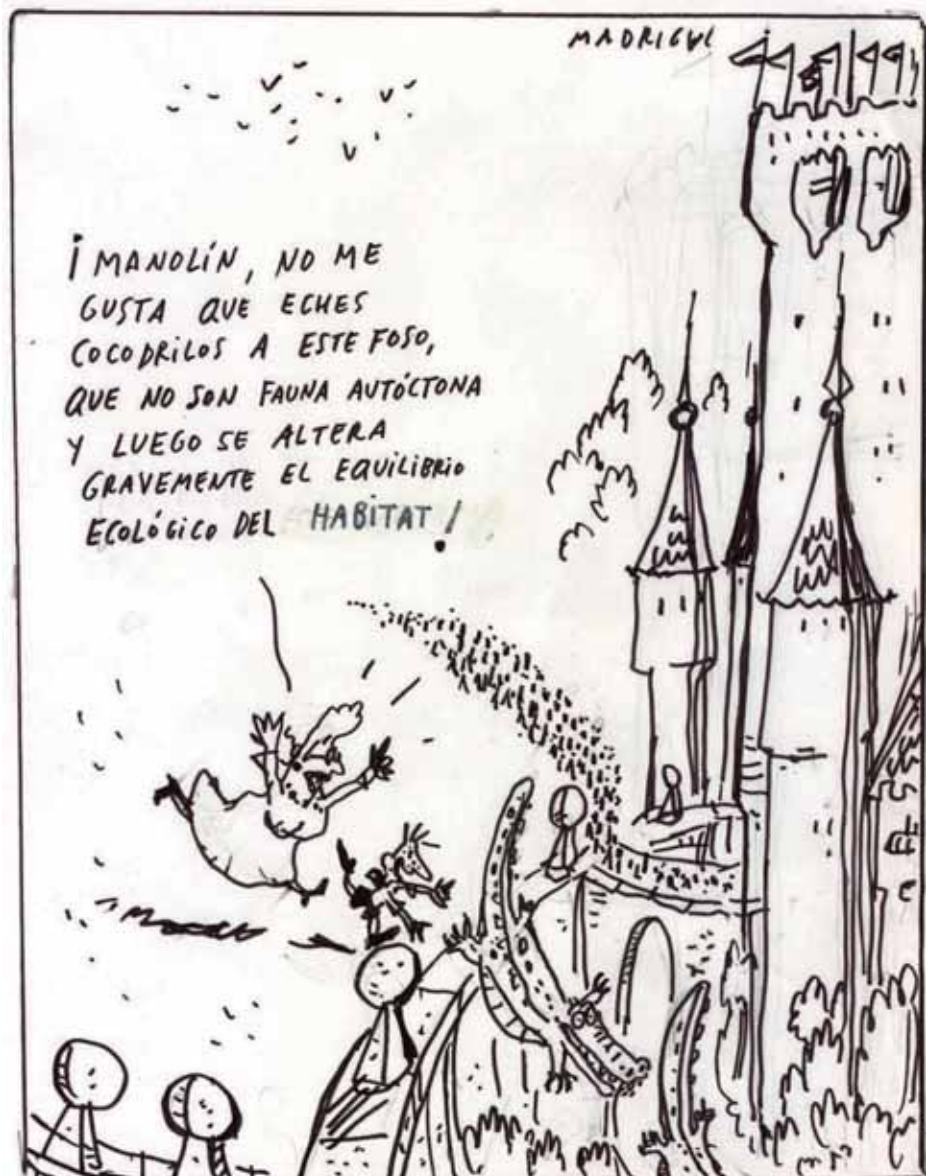 MADRIGAL
¡MANOLÍN, NO ME
GUSTA QUE ECHES
COCODRILOS A ESTE FOSO,
QUE NO SON FAUNA AUTÓCTONA
Y LUEGO SE ALTERA
GRAVEMENTE EL EQUILIBRIO
ECOLÓGICO DEL HABITAT!